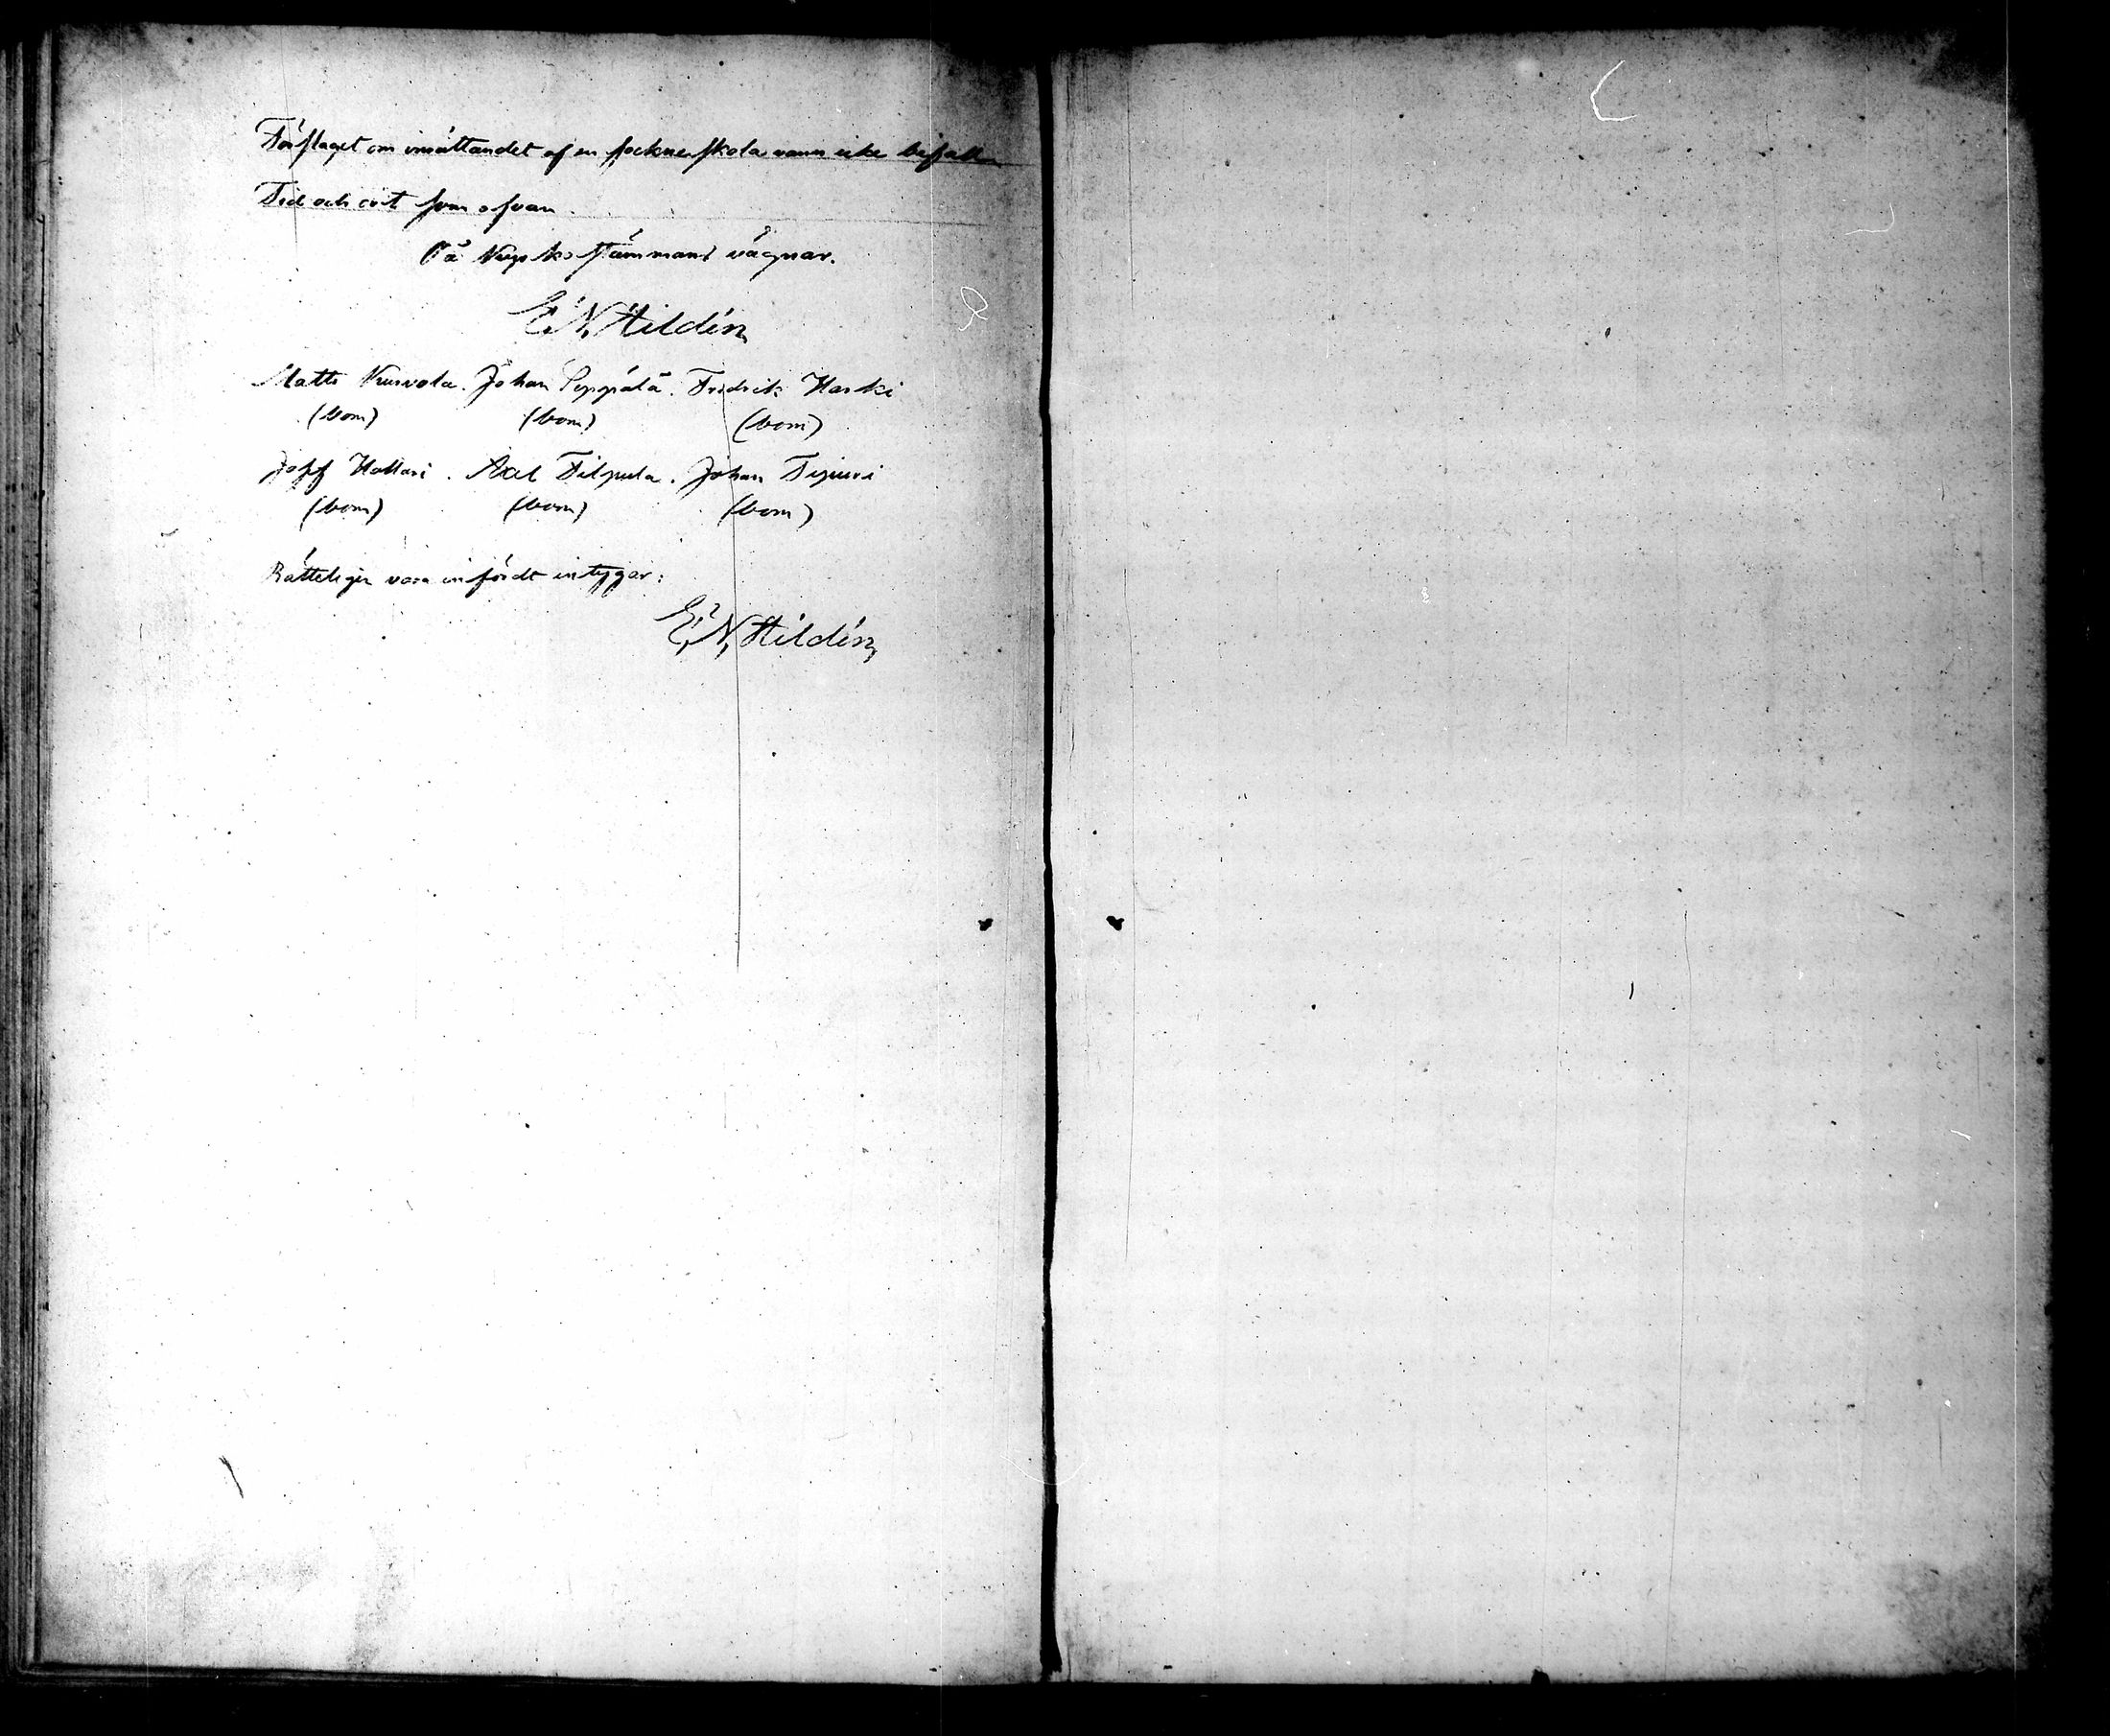 Förslaget om inrättandet af en sockneskola vann icke bifall.
Tid och ort som ofvan.
På Kyrkostämmans vägnar.
E. N. Hildén
Matts Kurvola. Johan Seppälä. Fredrik Harki
(bom) (bom) (bom)
Josef Hallari. Axel Filpula. Johan
(bom) (bom) (bom)
Rätteligen vara infördt intygar:
E. N. Hildén,